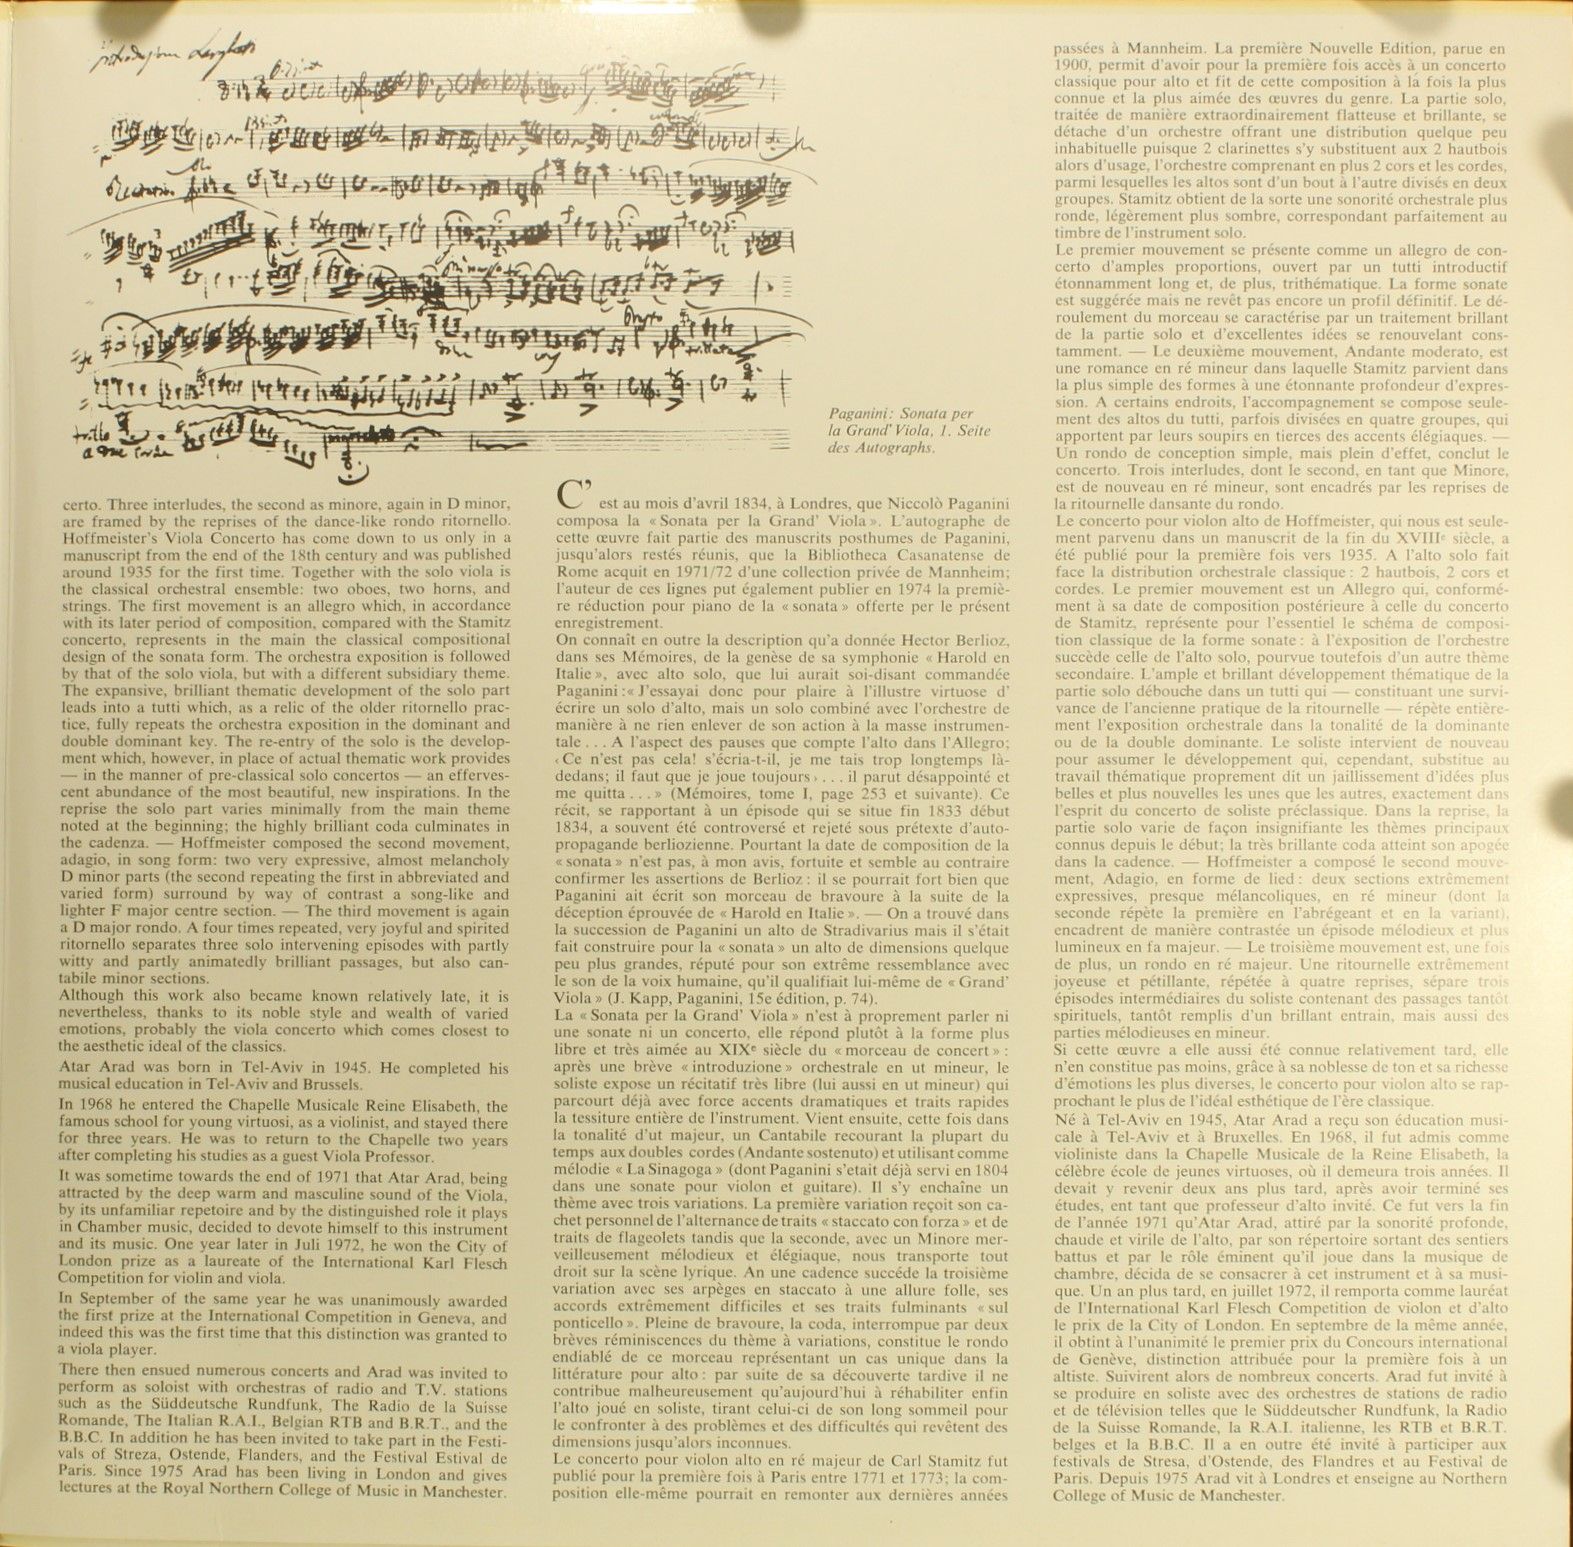 Paganini: Sonata per
la Grand' Viola, 1. Seite
des Autographs.
certo. Three interludes, the second as minore, again in D minor,
are framed by the reprises of the dance-like rondo ritornello.
Hoffmeister's Viola Concerto has come down to us only in a
manuscript from the end of the 18th century and was published
around 1935 for the first time. Together with the solo viola is
the classical orchestral ensemble: two oboes, two horns, and
strings. The first movement is an allegro which, in accordance
with its later period of composition, compared with the Stamitz
concerto, represents in the main the classical compositional
design of the sonata form. The orchestra exposition is followed
by that of the solo viola, but with a different subsidiary theme.
The expansive, brilliant thematic development of the solo part
leads into a tutti which, as a relic of the older ritornello prac-
tice, fully repeats the orchestra exposition in the dominant and
double dominant key. The re-entry of the solo is the develop-
ment which, however, in place of actual thematic work provides
— in the manner of pre-classical solo concertos — an efferves-
cent abundance of the most beautiful, new inspirations. In the
reprise the solo part varies minimally from the main theme
noted at the beginning; the highly brilliant coda culminates in
the cadenza. — Hoffmeister composed the second movement,
adagio, in song form: two very expressive, almost melancholy
D minor parts (the second repeating the first in abbreviated and
varied form) surround by way of contrast a song-like and
lighter F major centre section. — The third movement is again
a D major rondo. A four times repeated, very joyful and spirited
ritornello separates three solo intervening episodes with partly
witty and partly animatedly brilliant passages, but also can-
tabile minor sections.
Although this work also became known relatively late, it is
nevertheless, thanks to its noble style and wealth of varied
emotions, probably the viola concerto which comes closest to
the aesthetic ideal of the classics.
Atar Arad was born in Tel-Aviv in 1945. He completed his
musical education in Tel-Aviv and Brussels.
In 1968 he entered the Chapelle Musicale Reine Elisabeth, the
famous school for young virtuosi, as a violinist, and stayed there
for three years. He was to return to the Chapelle two years
after completing his studies as a guest Viola Professor.
It was sometime towards the end of 1971 that Atar Arad, being
attracted by the deep warm and masculine sound of the Viola,
by its unfamiliar repetoire and by the distinguished role it plays
in Chamber music, decided to devote himself to this instrument
and its music. One year later in Juli 1972, he won the City of
London prize as a laureate of the International Karl Flesch
Competition for violin and viola.
In September of the same year he was unanimously awarded
the first prize at the International Competition in Geneva, and
indeed this was the first time that this distinction was granted to
a viola player.
There then ensued numerous concerts and Arad was invited to
perform as soloist with orchestras of radio and T.V. stations
such as the Süddeutsche Rundfunk, The Radio de la Suisse
Romande, The Italian R.A.I., Belgian RTB and B.R.T., and the
B.B.C. In addition he has been invited to take part in the Festi-
vals of Streza, Ostende, Flanders, and the Festival Estival de
Paris. Since 1975 Arad has been living in London and gives
lectures at the Royal Northern College of Music in Manchester.
C'est au mois d'avril 1834, à Londres, que Niccolò Paganini
composa la « Sonata per la Grand' Viola ». L'autographe de
cette œuvre fait partie des manuscrits posthumes de Paganini,
jusqu'alors restés réunis, que la Bibliotheca Casanatense de
Rome acquit en 1971/72 d'une collection privée de Mannheim;
l'auteur de ces lignes put également publier en 1974 la premiè-
re réduction pour piano de la « sonata » offerte per le présent
enregistrement.
On connaît en outre la description qu'a donnée Hector Berlioz,
dans ses Mémoires, de la genèse de sa symphonie « Harold en
Italie », avec alto solo, que lui aurait soi-disant commandée
Paganini : « J'essayai donc pour plaire à l'illustre virtuose d'
écrire un solo d'alto, mais un solo combiné avec l'orchestre de
manière à ne rien enlever de son action à la masse instrumen-
tale . . . A l'aspect des pauses que compte l'alto dans l'Allegro;
‹ Ce n'est pas cela! s'écria-t-il, je me tais trop longtemps là-
dedans; il faut que je joue toujours › . . . il parut désappointé et
me quitta . . . » (Mémoires, tome I, page 253 et suivante). Ce
récit, se rapportant à un épisode qui se situe fin 1833 début
1834, a souvent été controversé et rejeté sous prétexte d'auto-
propagande berliozienne. Pourtant la date de composition de la
« sonata » n'est pas, à mon avis, fortuite et semble au contraire
confirmer les assertions de Berlioz : il se pourrait fort bien que
Paganini ait écrit son morceau de bravoure à la suite de la
déception éprouvée de « Harold en Italie ». — On a trouvé dans
la succession de Paganini un alto de Stradivarius mais il s'était
fait construire pour la « sonata » un alto de dimensions quelque
peu plus grandes, réputé pour son extrême ressemblance avec
le son de la voix humaine, qu'il qualifiait lui-même de « Grand'
Viola » (J. Kapp, Paganini, 15e édition, p. 74).
La « Sonata per la Grand' Viola » n'est à proprement parler ni
une sonate ni un concerto, elle répond plutôt à la forme plus
libre et très aimée au XIXe siècle du « morceau de concert » :
après une brève « introduzione » orchestrale en ut mineur, le
soliste expose un récitatif très libre (lui aussi en ut mineur) qui
parcourt déjà avec force accents dramatiques et traits rapides
la tessiture entière de l'instrument. Vient ensuite, cette fois dans
la tonalité d'ut majeur, un Cantabile recourant la plupart du
temps aux doubles cordes (Andante sostenuto) et utilisant comme
mélodie « La Sinagoga » (dont Paganini s'etait déjà servi en 1804
dans une sonate pour violon et guitare). Il s'y enchaîne un
thème avec trois variations. La première variation reçoit son ca-
chet personnel de l'alternance de traits « staccato con forza » et de
traits de flageolets tandis que la seconde, avec un Minore mer-
veilleusement mélodieux et élégiaque, nous transporte tout
droit sur la scène lyrique. An une cadence succéde la troisième
variation avec ses arpèges en staccato à une allure folle, ses
accords extrêmement difficiles et ses traits fulminants « sul
ponticello ». Pleine de bravoure, la coda, interrompue par deux
brèves réminiscences du thème à variations, constitue le rondo
endiablé de ce morceau représentant un cas unique dans la
littérature pour alto : par suite de sa découverte tardive il ne
contribue malheureusement qu'aujourd'hui à réhabiliter enfin
l'alto joué en soliste, tirant celui-ci de son long sommeil pour
le confronter à des problèmes et des difficultés qui revêtent des
dimensions jusqu'alors inconnues.
Le concerto pour violon alto en ré majeur de Carl Stamitz fut
publié pour la première fois à Paris entre 1771 et 1773; la com-
position elle-même pourrait en remonter aux dernières années
passées à Mannheim. La première Nouvelle Edition, parue en
1900, permit d'avoir pour la première fois accès à un concerto
classique pour alto et fit de cette composition à la fois la plus
connue et la plus aimée des œuvres du genre. La partie solo,
traitée de manière extraordinairement flatteuse et brillante, se
détache d'un orchestre offrant une distribution quelque peu
inhabituelle puisque 2 clarinettes s'y substituent aux 2 hautbois
alors d'usage, l'orchestre comprenant en plus 2 cors et les cordes,
parmi lesquelles les altos sont d'un bout à l'autre divisés en deux
groupes. Stamitz obtient de la sorte une sonorité orchestrale plus
ronde, légèrement plus sombre, correspondant parfaitement au
timbre de l'instrument solo.
Le premier mouvement se présente comme un allegro de con-
certo d'amples proportions, ouvert par un tutti introductif
étonnamment long et, de plus, trithématique. La forme sonate
est suggérée mais ne revêt pas encore un profil définitif. Le dé-
roulement du morceau se caractérise par un traitement brillant
de la partie solo et d'excellentes idées se renouvelant cons-
tamment. — Le deuxième mouvement, Andante moderato, est
une romance en ré mineur dans laquelle Stamitz parvient dans
la plus simple des formes à une étonnante profondeur d'expres-
sion. A certains endroits, l'accompagnement se compose seule-
ment des altos du tutti, parfois divisées en quatre groupes, qui
apportent par leurs soupirs en tierces des accents élégiaques. —
Un rondo de conception simple, mais plein d'effet, conclut le
concerto. Trois interludes, dont le second, en tant que Minore,
est de nouveau en ré mineur, sont encadrés par les reprises de
la ritournelle dansante du rondo.
Le concerto pour violon alto de Hoffmeister, qui nous est seule-
ment parvenu dans un manuscrit de la fin du XVIIIe siècle, a
été publié pour la première fois vers 1935. A l'alto solo fait
face la distribution orchestrale classique : 2 hautbois, 2 cors et
cordes. Le premier mouvement est un Allegro qui, conformé-
ment à sa date de composition postérieure à celle du concerto
de Stamitz, représente pour l'essentiel le schéma de composi-
tion classique de la forme sonate : à l'exposition de l'orchestre
succède celle de l'alto solo, pourvue toutefois d'un autre thème
secondaire. L'ample et brillant développement thématique de la
partie solo débouche dans un tutti qui — constituant une survi-
vance de l'ancienne pratique de la ritournelle — répète entière-
ment l'exposition orchestrale dans la tonalité de la dominante
ou de la double dominante. Le soliste intervient de nouveau
pour assumer le développement qui, cependant, substitue au
travail thématique proprement dit un jaillissement d'idées plus
belles et plus nouvelles les unes que les autres, exactement dans
l'esprit du concerto de soliste préclassique. Dans la reprise, la
partie solo varie de façon insignifiante les thèmes principaux
connus depuis le début; la très brillante coda atteint son apogée
dans la cadence. — Hoffmeister a composé le second mouve-
ment, Adagio, en forme de lied : deux sections extrêmement
expressives, presque mélancoliques, en ré mineur (dont la
seconde répète la première en l'abrégeant et en la variant),
encadrent de manière contrastée un épisode mélodieux et plus
lumineux en fa majeur. — Le troisième mouvement est, une fois
de plus, un rondo en ré majeur. Une ritournelle extrêmement
joyeuse et pétillante, répétée à quatre reprises, sépare trois
épisodes intermédiaires du soliste contenant des passages tantôt
spirituels, tantôt remplis d'un brillant entrain, mais aussi des
parties mélodieuses en mineur.
Si cette œuvre a elle aussi été connue relativement tard, elle
n'en constitue pas moins, grâce à sa noblesse de ton et sa richesse
d'émotions les plus diverses, le concerto pour violon alto se rap-
prochant le plus de l'idéal esthétique de l'ère classique.
Né à Tel-Aviv en 1945, Atar Arad a reçu son éducation musi-
cale à Tel-Aviv et à Bruxelles. En 1968, il fut admis comme
violiniste dans la Chapelle Musicale de la Reine Elisabeth, la
célèbre école de jeunes virtuoses, où il demeura trois années. Il
devait y revenir deux ans plus tard, après avoir terminé ses
études, ent tant que professeur d'alto invité. Ce fut vers la fin
de l'année 1971 qu'Atar Arad, attiré par la sonorité profonde,
chaude et virile de l'alto, par son répertoire sortant des sentiers
battus et par le rôle éminent qu'il joue dans la musique de
chambre, décida de se consacrer à cet instrument et à sa musi-
que. Un an plus tard, en juillet 1972, il remporta comme lauréat
de l'International Karl Flesch Competition de violon et d'alto
le prix de la City of London. En septembre de la même année,
il obtint à l'unanimité le premier prix du Concours international
de Genève, distinction attribuée pour la première fois à un
altiste. Suivirent alors de nombreux concerts. Arad fut invité à
se produire en soliste avec des orchestres de stations de radio
et de télévision telles que le Süddeutscher Rundfunk, la Radio
de la Suisse Romande, la R.A.I. italienne, les RTB et B.R.T.
belges et la B.B.C. Il a en outre été invité à participer aux
festivals de Stresa, d'Ostende, des Flandres et au Festival de
Paris. Depuis 1975 Arad vit à Londres et enseigne au Northern
College of Music de Manchester.